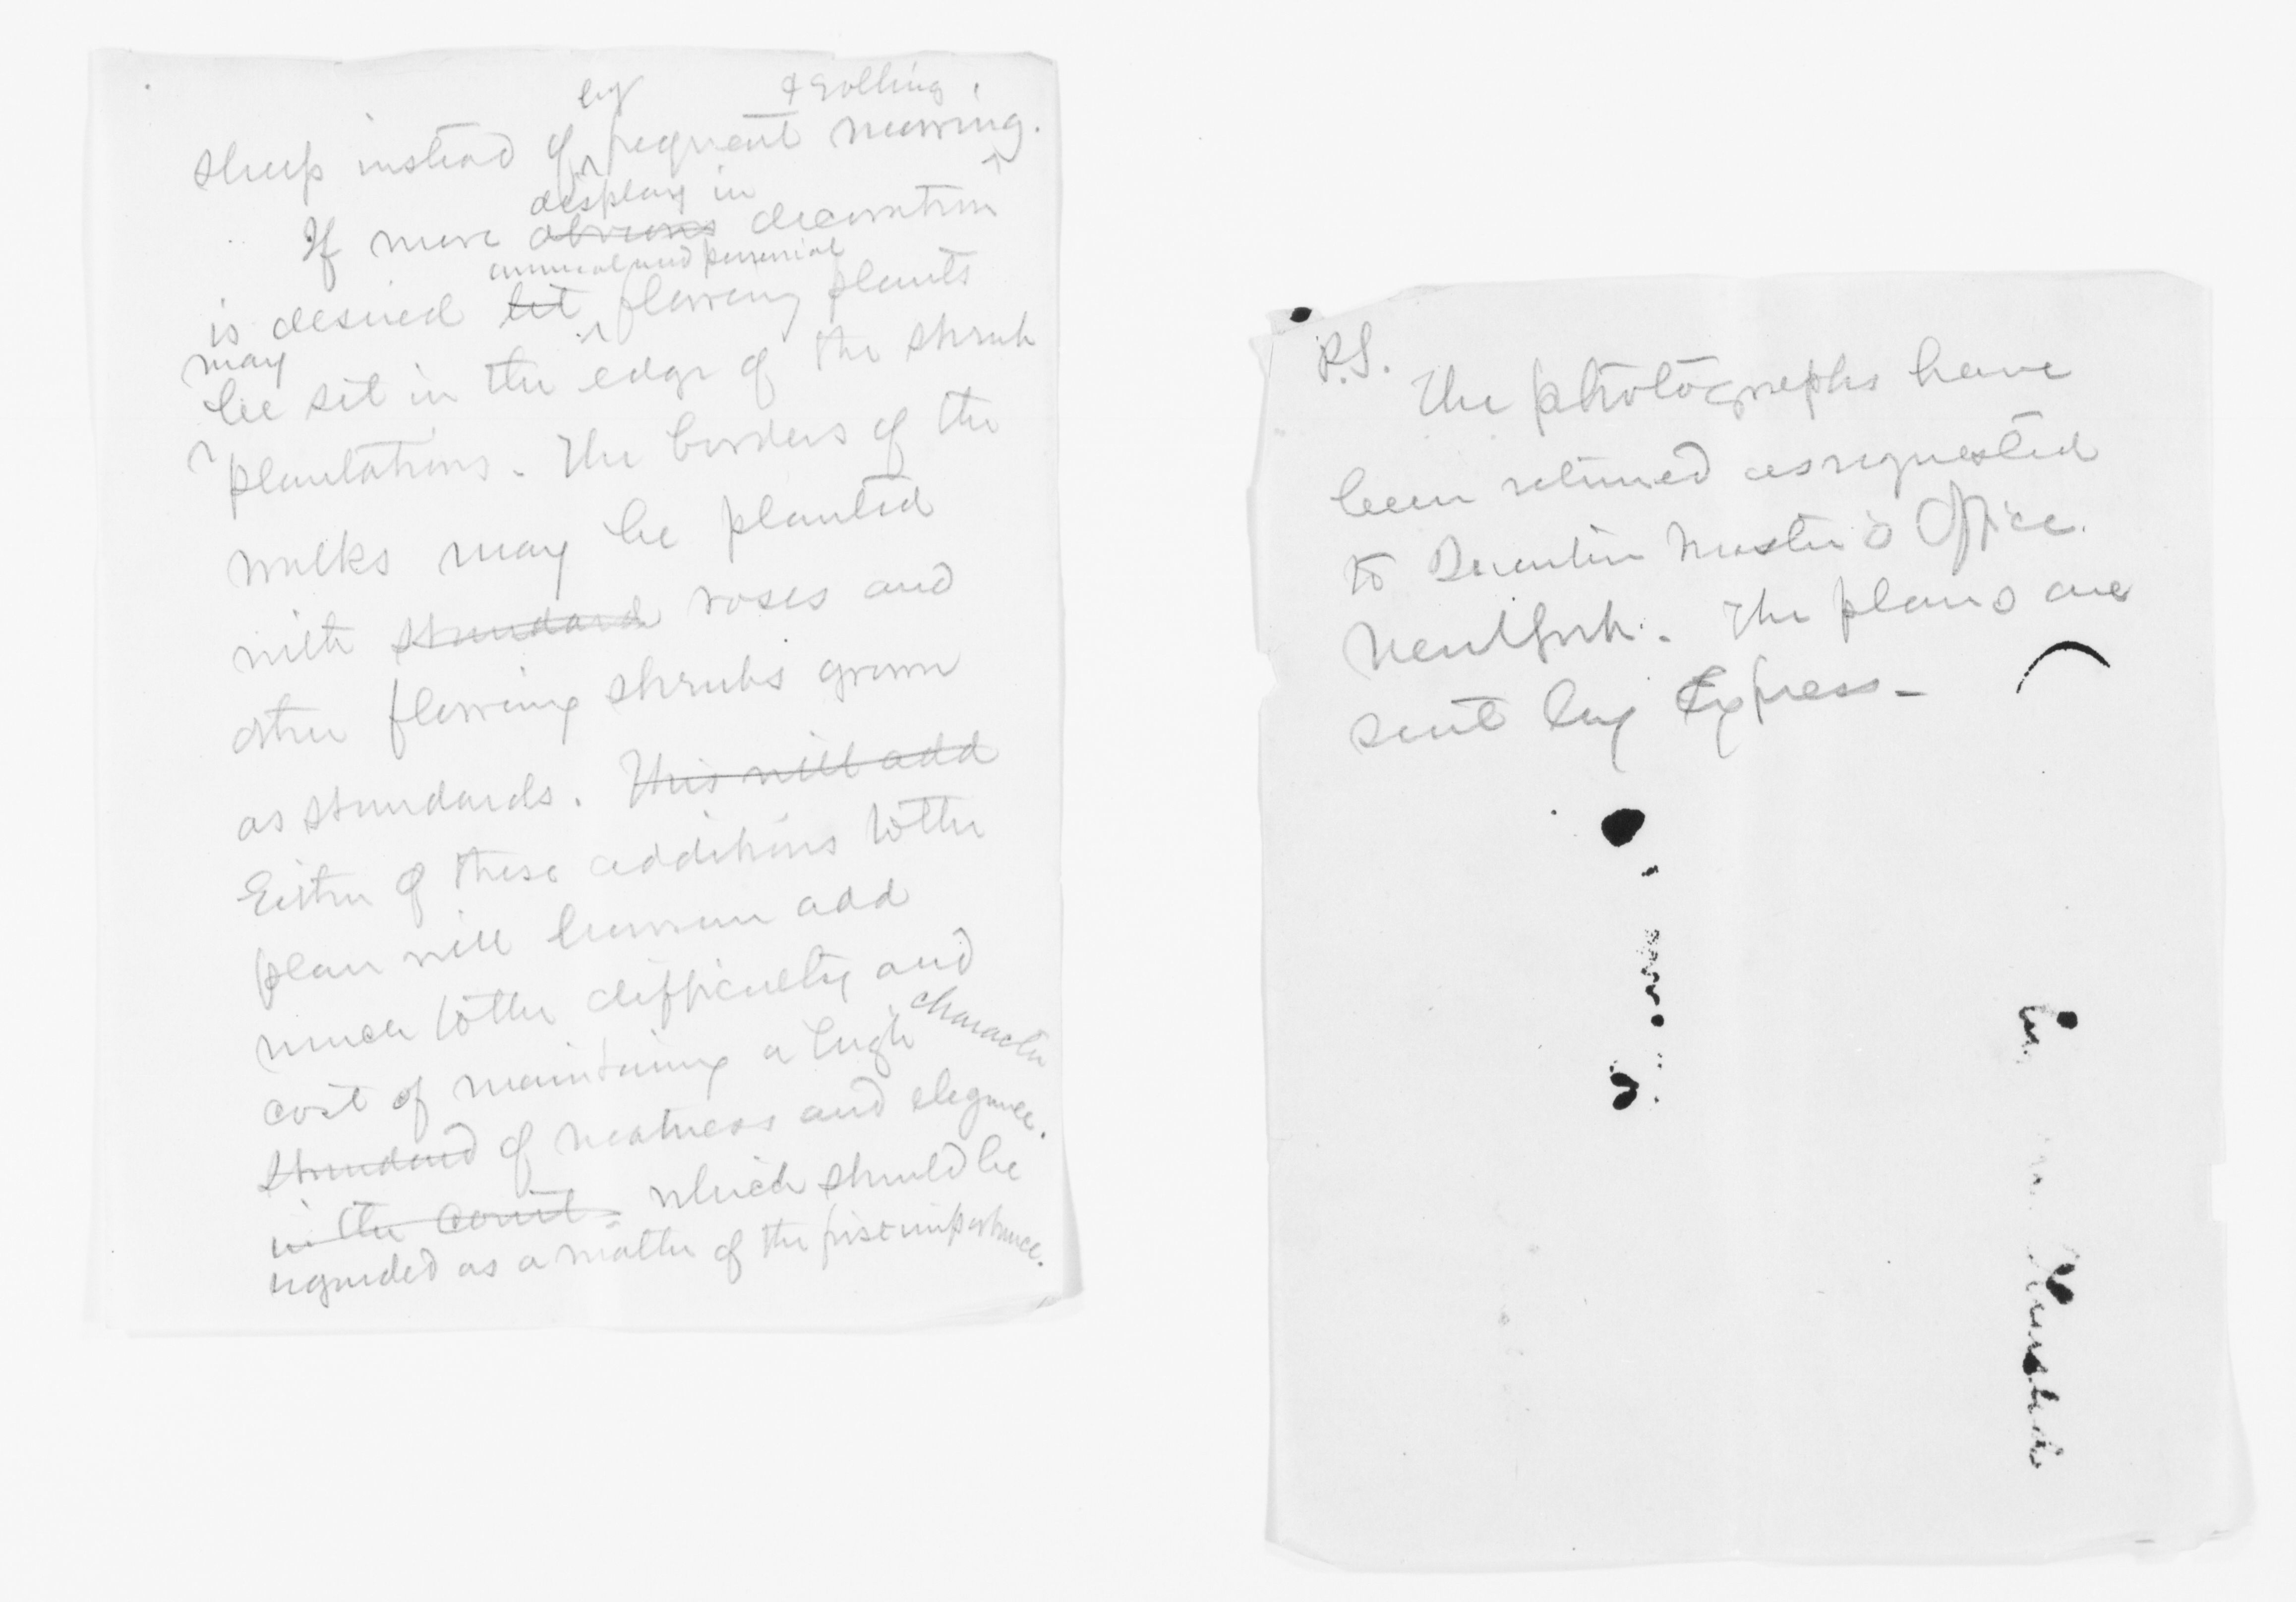 by & rolling
sheep instead of frequent mowing.
display in
If more obvious decoration
annual and perennial
is desired let flowering plants
may
be set in the edge of the shrub
plantations. The borders of the
walks may be planted
with standard roses and
other flowering shrubs grown
as standards. This will add
Either of these additions to the
plan will however add
much to the difficulty and
cost of maintaining a high character
standard of neatness and elegance.
in the court. which should be
regarded as a matter of the first importance.
P.S.
The photographs have
been returned as requested
to Quarter Master's Office.
New York. The plans are
sent by Express-